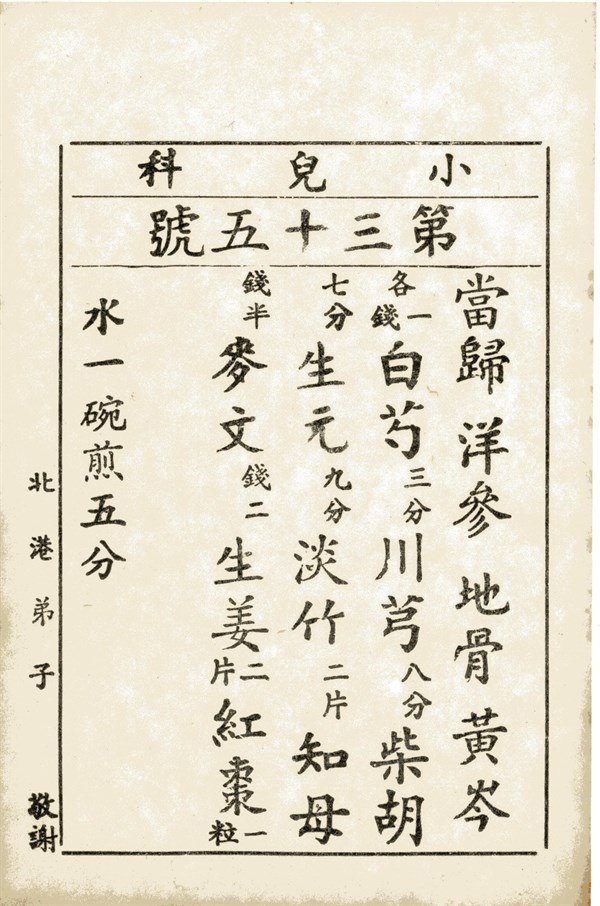 小兒科
第三十五號
當歸 洋參 地骨 黃岑
各一錢 白芍 三分 川芎 八分 柴胡
七分 生元 九分 淡竹 二片 知母
錢半 麥文 錢二 生姜 二片 紅棗 一粒
水一碗煎五分
北港弟子 敬謝